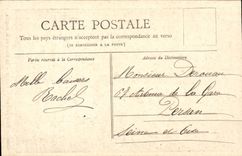 CARTE POSTALE
Tous les pays étrangers n'acceptent pas la correspondance au verso
(SE RENSEIGNER A LA POSTE)
Partie réservée à la Correspondance
Adresse du Destinataire
Monsieur
Mlle
Rachel
Avenue de la Gare
Persan
Seine et Oise